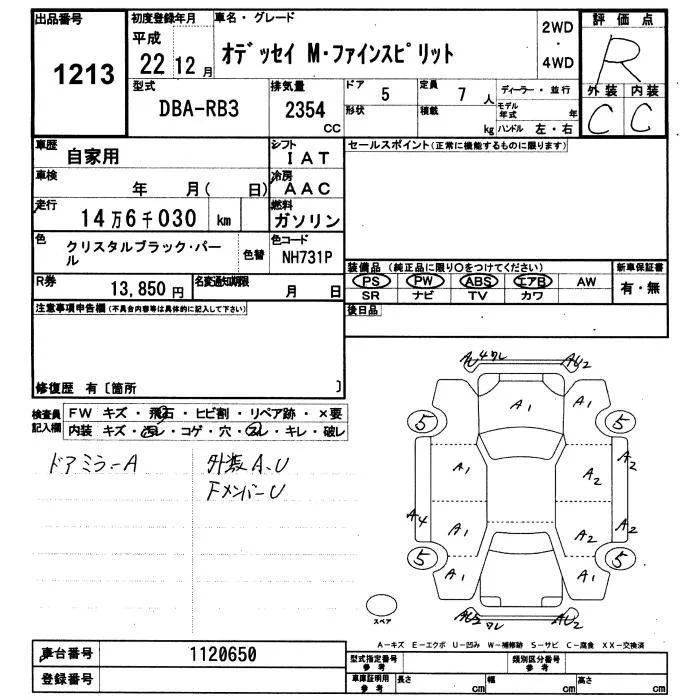 出品番号
1213
初度登録年月
平成
22 12 月
車名・グレード
オデッセイ M・ファインスピリット
2WD
・
4WD
評価点
R
外装 内装
C C
型式
DBA-RB3
排気量
2354
CC
ドア 5
形状
定員 7 人
積載 kg
ディーラー・並行
モデル年式 年
ハンドル 左・右
車歴
自家用
シフト
IAT
セールスポイント(正常に機能するものに限ります)
車検
年 月( 日)
冷房
AAC
走行
14万6千030 km
燃料
ガソリン
色
クリスタルブラック・パール
色替
色コード
NH731P
装備品 (純正品に限り○をつけてください)
PS PW ABS エアB AW
SR ナビ TV カワ
新車保証書
有・無
R券
13,850 円
名変通知期限
月 日
後日品
注意事項申告欄(不具合内容等は具体的に記入して下さい)
修復歴 有〔箇所 〕
検査員記入欄
FW キズ・飛石・ヒビ割・リペア跡・×要
内装 キズ・汚レ・コゲ・穴・スレ・キレ・破レ
ドアミラーA
外装A、U
FメンバーU
AU4ワレ AU2
A1 A1
5 5
A1 A2 A2
A4 A1 A2 A2
5 5
A1 A1
スペア
AU3ワレ AU2
A-キズ E-エクボ U-凹み W-補修跡 S-サビ C-腐食 XX-交換済
車台番号
1120650
登録番号
型式指定番号
参考
類別区分番号
参考
車庫証明用
参考
長さ cm
幅 cm
高さ cm